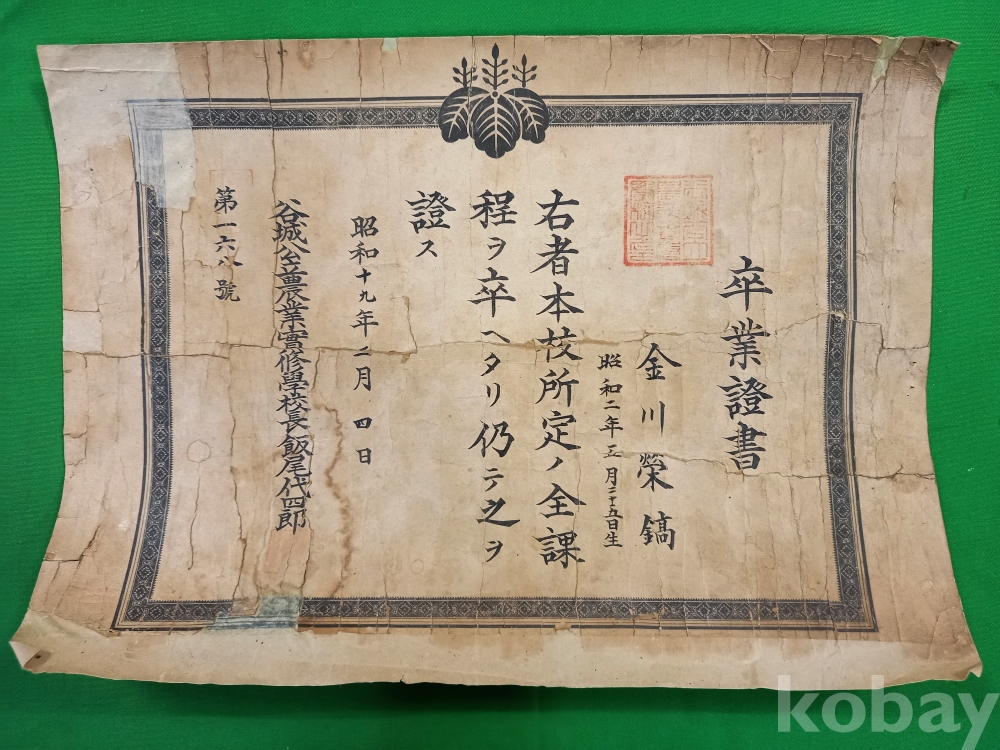 卒業證書
金川榮鎬
昭和二年五月二十五日生
右者本校所定ノ全課
程ヲ卒ヘタリ仍テ之ヲ
證ス
昭和十九年二月四日
谷城公立農業實修學校長飯尾代四郎
第一六八號
kobay